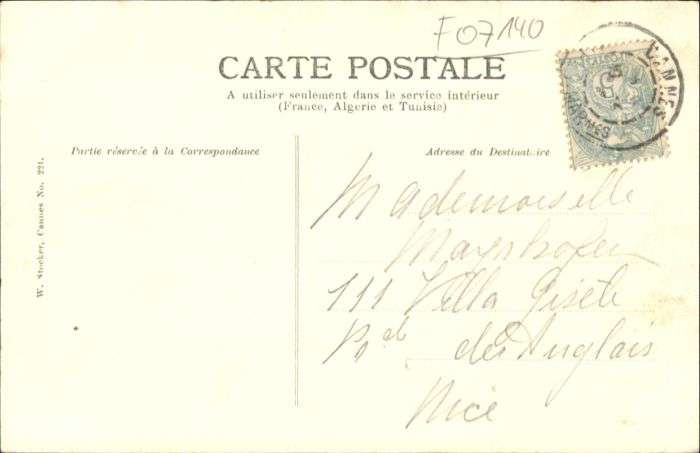 F 07140
CARTE POSTALE
A utiliser seulement dans le service intérieur
(France, Algerie et Tunisie)
Partie réservée à la Correspondance
Adresse du Destinataire
W. Stocker, Cannes No. 221.
CANNES
Mademoiselle
Mayrhofen
111 Villa Gisèle
Pr de des Anglais
Nice